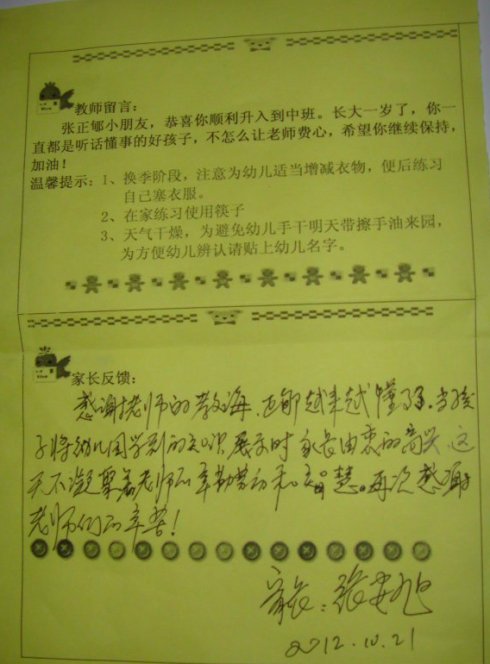 教师留言：
张正郇小朋友，恭喜你顺利升入到中班。长大一岁了，你一
直都是听话懂事的好孩子，不怎么让老师费心，希望你继续保持，
加油！
温馨提示：1、换季阶段，注意为幼儿适当增减衣物，便后练习
自己塞衣服。
2、在家练习使用筷子
3、天气干燥，为避免幼儿手干明天带擦手油来园，
为方便幼儿辨认请贴上幼儿名字。
家长反馈：
感谢老师的教诲，正郇越来越懂事了。当孩
子将幼儿园学到的知识展示时家长由衷的高兴，这
无不凝聚着老师的辛勤劳动和智慧。再次感谢
老师们的辛苦！
家长：张安旭
2012.10.21